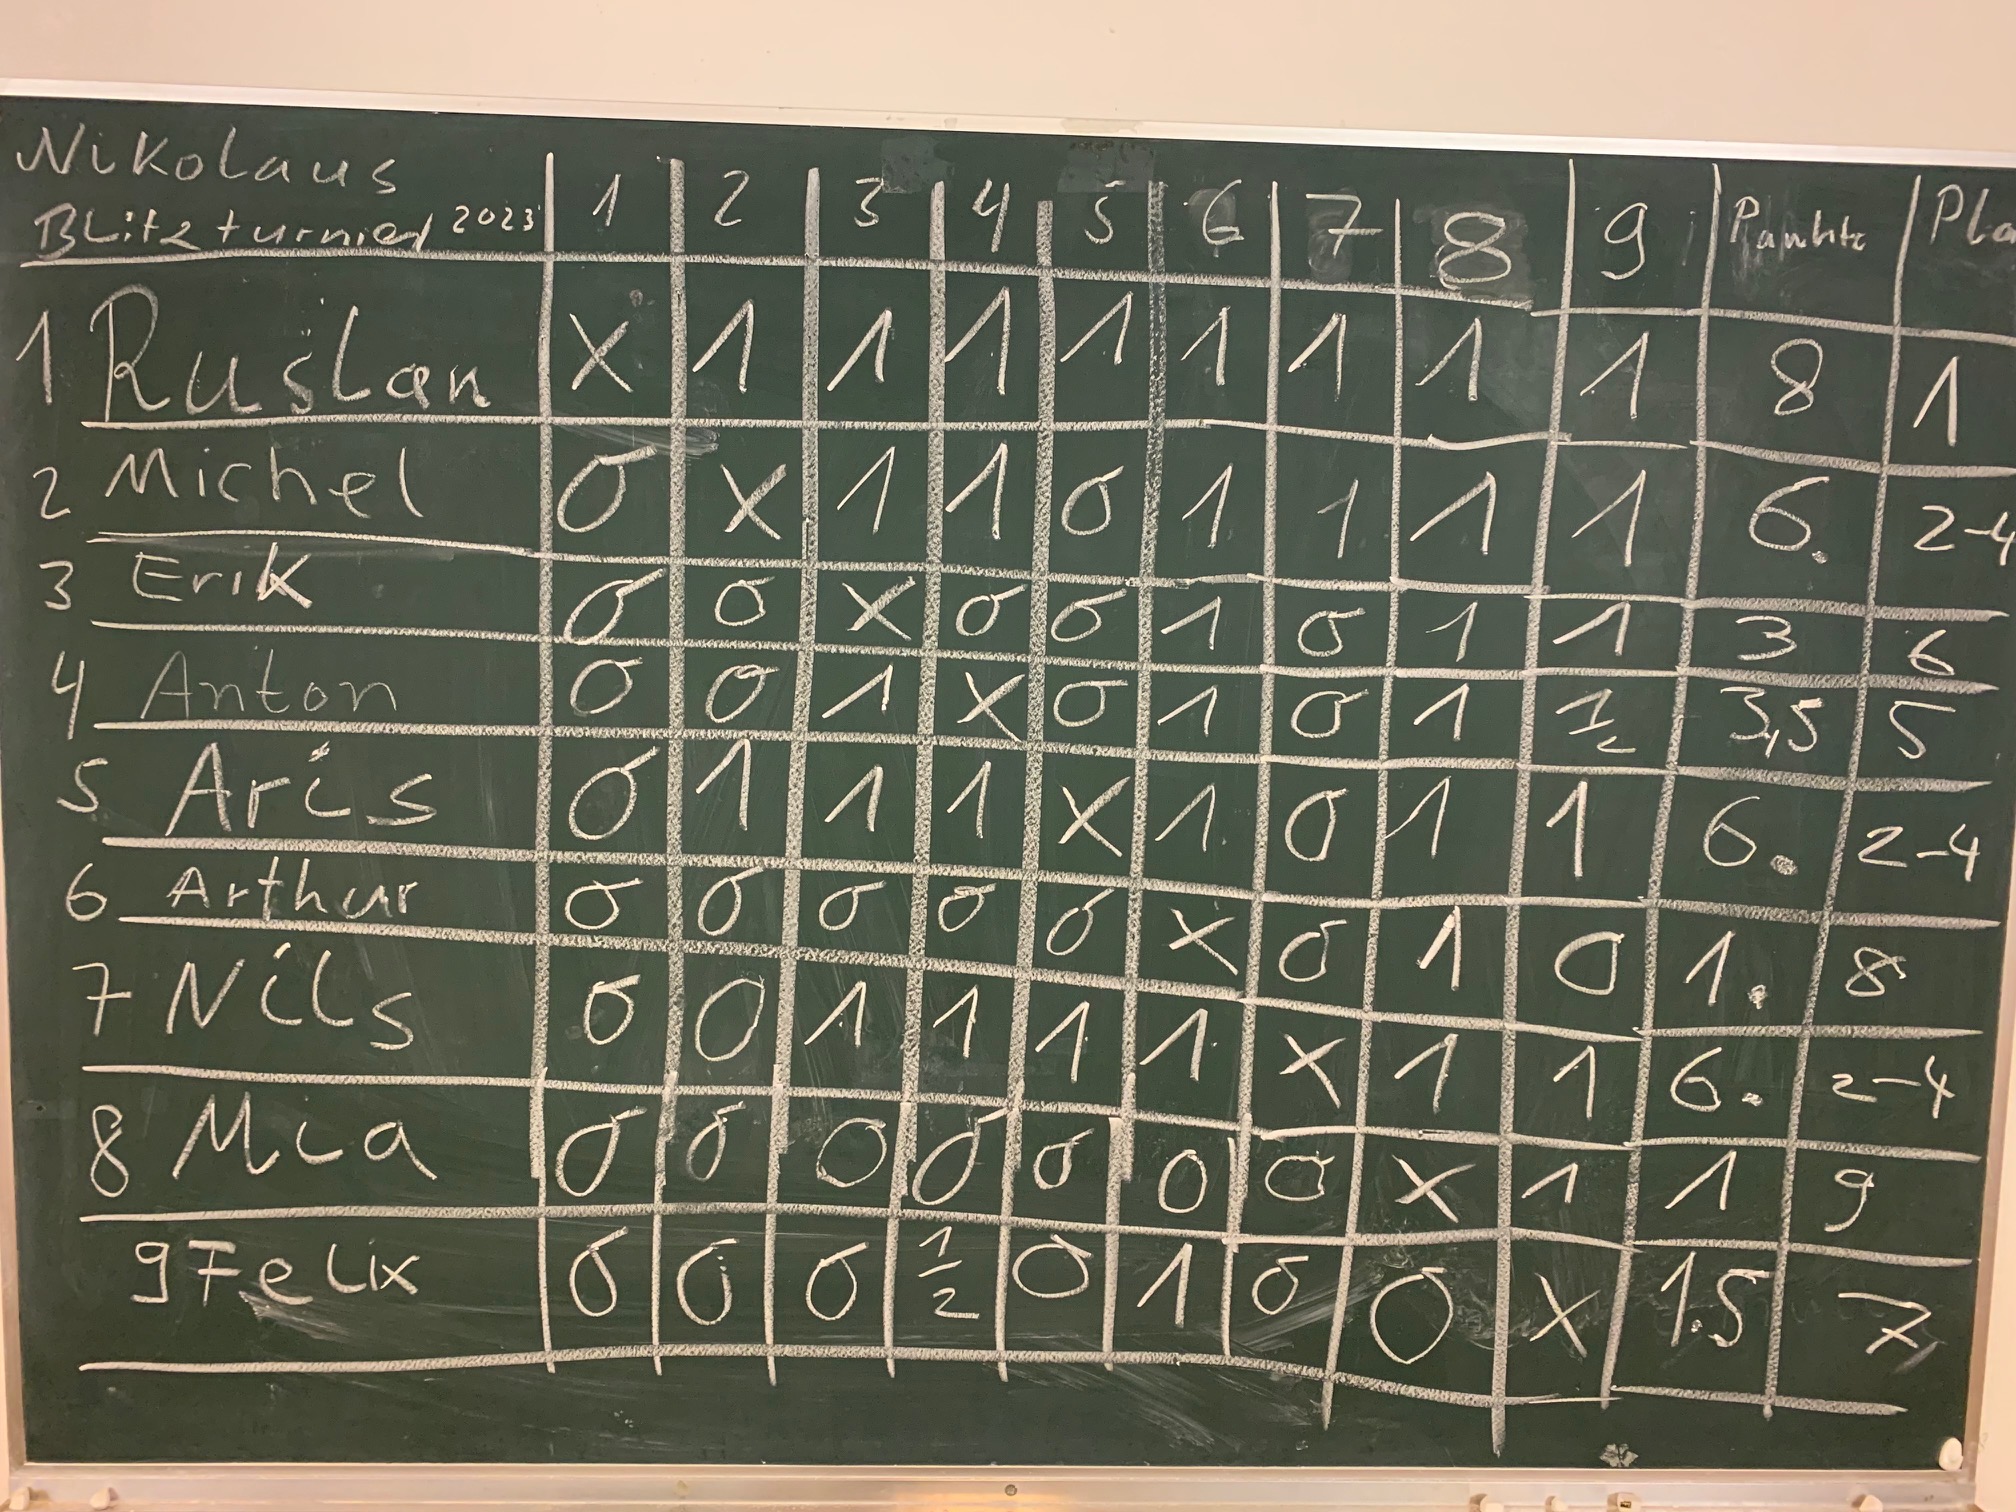 Nikolaus
Blitzturnier 2023 1 2 3 4 5 6 7 8 9 Punkte Pla
1 Ruslan X 1 1 1 1 1 1 1 1 8 1
2 Michel 0 X 1 1 0 1 1 1 1 6. 2-4
3 Erik 0 0 X 0 0 1 0 1 1 3 6
4 Anton 0 0 1 X 0 1 0 1 1/2 3,5 5
5 Aris 0 1 1 1 X 1 0 1 1 6. 2-4
6 Arthur 0 0 0 0 0 X 0 1 0 1. 8
7 Nils 0 0 1 1 1 1 X 1 1 6. 2-4
8 Mia 0 0 0 0 0 0 0 X 1 1 9
9 Felix 0 0 0 1/2 0 1 0 0 X 1.5 7